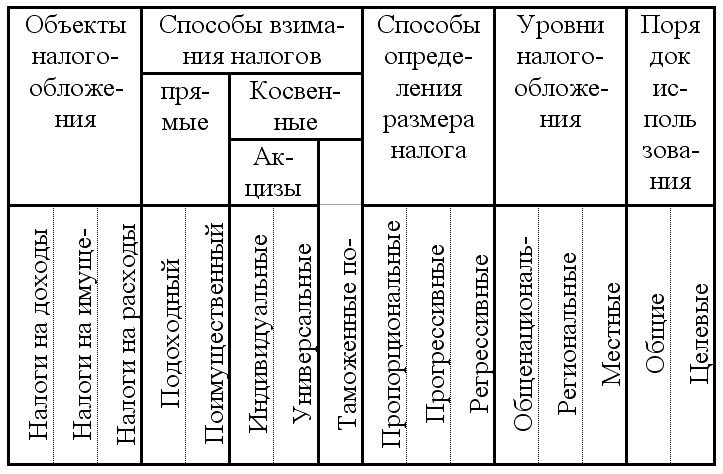 Объекты
налого-
обложе-
ния
Способы взима-
ния налогов
Способы
опреде-
ления
размера
налога
Уровни
налого-
обложе-
ния
Поря
док
ис-
поль
зова-
ния
пря-
мые
Косвен-
ные
Ак-
цизы
Налоги на доходы
Налоги на имуще-
Налоги на расходы
Подоходный
Поимущественный
Индивидуальные
Универсальные
Таможенные по-
Пропорциональные
Прогрессивные
Регрессивные
Общенациональ-
Региональные
Местные
Общие
Целевые